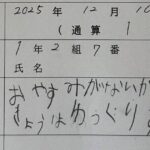 2025 年 12 月 10
(通算 1
1年2組7番
氏名
おやすみがないか
きょうはゆっくり